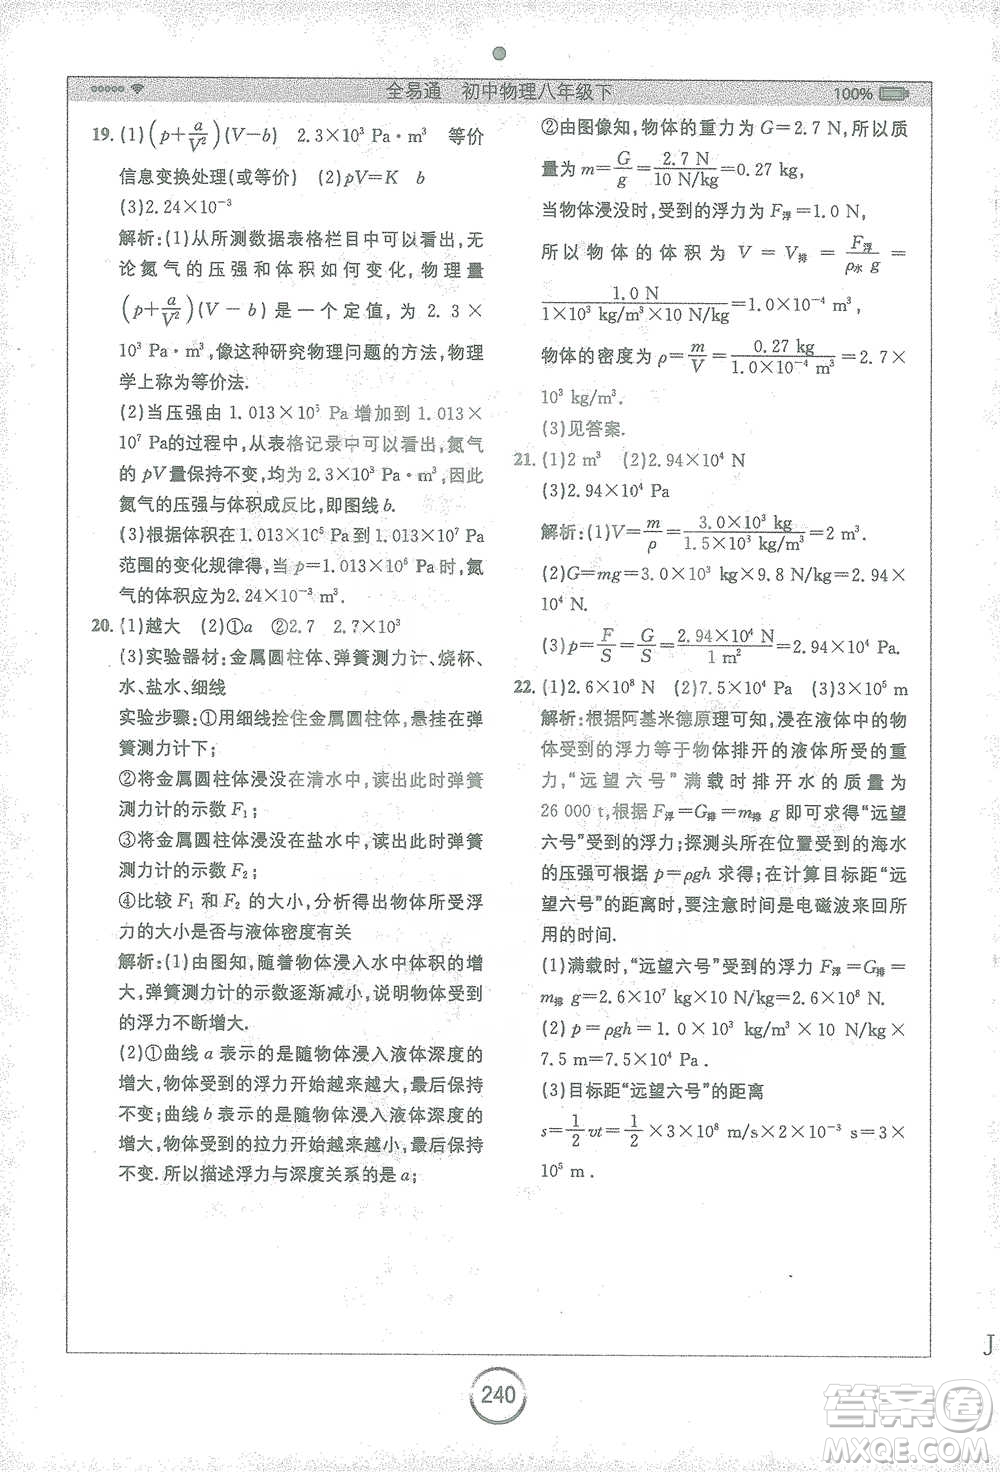 全易通　初中物理八年级下
100%
19. (1)(p+a/V²)(V－b)　2.3×10³ Pa·m³　等价
信息变换处理(或等价)　(2)pV=K　b
(3)2.24×10⁻³
解析:(1)从所测数据表格栏目中可以看出,无
论氮气的压强和体积如何变化,物理量
(p+a/V²)(V－b)是一个定值,为2.3×
10³ Pa·m³,像这种研究物理问题的方法,物理
学上称为等价法.
(2)当压强由1.013×10⁵ Pa增加到1.013×
10⁷ Pa的过程中,从表格记录中可以看出,氮气
的pV量保持不变,均为2.3×10³ Pa·m³,因此
氮气的压强与体积成反比,即图线b.
(3)根据体积在1.013×10⁵ Pa到1.013×10⁷ Pa
范围的变化规律得,当p=1.013×10⁶ Pa时,氮
气的体积应为2.24×10⁻³ m³.
20. (1)越大　(2)①a　②2.7　2.7×10³
(3)实验器材:金属圆柱体、弹簧测力计、烧杯、
水、盐水、细线
实验步骤:①用细线拴住金属圆柱体,悬挂在弹
簧测力计下;
②将金属圆柱体浸没在清水中,读出此时弹簧
测力计的示数F₁;
③将金属圆柱体浸没在盐水中,读出此时弹簧
测力计的示数F₂;
④比较F₁和F₂的大小,分析得出物体所受浮
力的大小是否与液体密度有关
解析:(1)由图知,随着物体浸入水中体积的增
大,弹簧测力计的示数逐渐减小,说明物体受到
的浮力不断增大.
(2)①曲线a表示的是随物体浸入液体深度的
增大,物体受到的浮力开始越来越大,最后保持
不变;曲线b表示的是随物体浸入液体深度的
增大,物体受到的拉力开始越来越小,最后保持
不变.所以描述浮力与深度关系的是a;
②由图像知,物体的重力为G=2.7 N,所以质
量为m=G/g=2.7 N/10 N/kg=0.27 kg,
当物体浸没时,受到的浮力为F浮=1.0 N,
所以物体的体积为V=V排=F浮/ρ水g=
1.0 N/1×10³ kg/m³×10 N/kg=1.0×10⁻⁴ m³,
物体的密度为ρ=m/V=0.27 kg/1.0×10⁻⁴ m³=2.7×
10³ kg/m³.
(3)见答案.
21. (1)2 m³　(2)2.94×10⁴ N
(3)2.94×10⁴ Pa
解析:(1)V=m/ρ=3.0×10³ kg/1.5×10³ kg/m³=2 m³.
(2)G=mg=3.0×10³ kg×9.8 N/kg=2.94×
10⁴ N.
(3)p=F/S=G/S=2.94×10⁴ N/1 m²=2.94×10⁴ Pa.
22. (1)2.6×10⁸ N　(2)7.5×10⁴ Pa　(3)3×10⁵ m
解析:根据阿基米德原理可知,浸在液体中的物
体受到的浮力等于物体排开的液体所受的重
力,“远望六号”满载时排开水的质量为
26 000 t,根据F浮=G排=m排g即可求得“远望
六号”受到的浮力;探测头所在位置受到的海水
的压强可根据p=ρgh求得;在计算目标距“远
望六号”的距离时,要注意时间是电磁波来回所
用的时间.
(1)满载时,“远望六号”受到的浮力F浮=G排=
m排g=2.6×10⁷ kg×10 N/kg=2.6×10⁸ N.
(2)p=ρgh=1.0×10³ kg/m³×10 N/kg×
7.5 m=7.5×10⁴ Pa.
(3)目标距“远望六号”的距离
s=1/2vt=1/2×3×10⁸ m/s×2×10⁻³ s=3×
10⁵ m.
J
240
答案圈
MXQE.COM